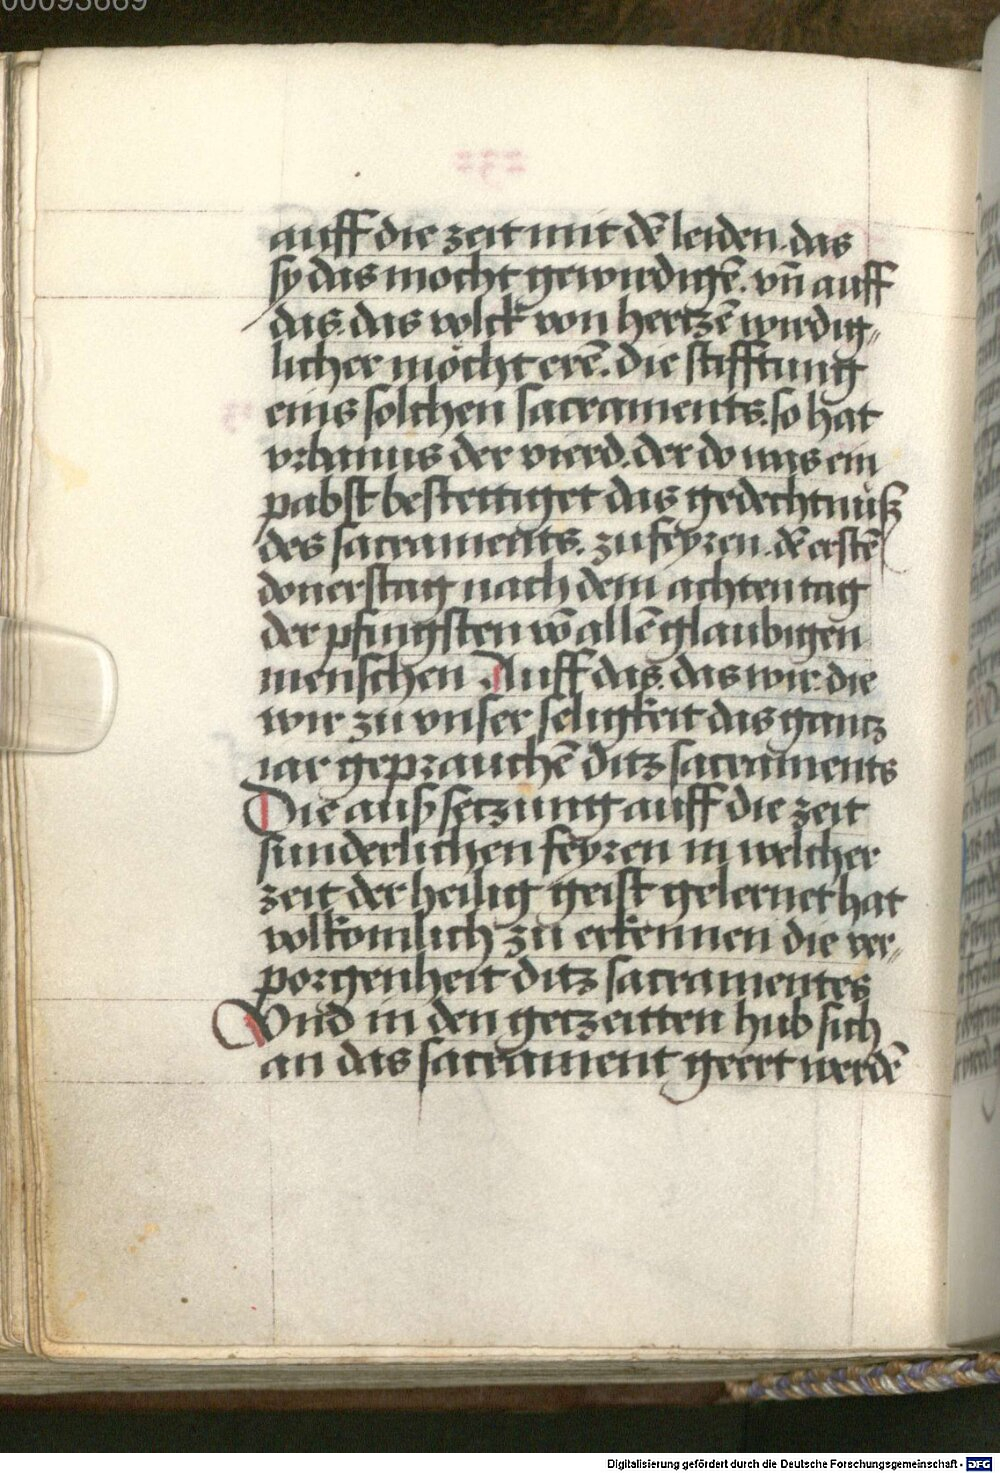 00093669
auff die zeit mit dē leiden. das
sy das mocht gewirdigē. vn̄ auff
das. das volck von hertzē wirdig„
licher möcht erē. die stifftung
eins solchen sacraments. so hat
vrbanus der vierd. der do was ein
pabst bestettiget das gedechtnüß
des sacraments. zu feyren. dē erstē
donerstag nach dem achten tag
der pfingsten vō allē glaubigen
menschen Auff das. das wir. die
wir zu vnser seligkeit das gantz
iar geprauchē ditz sacraments
Die außsetzung auff die zeit
sunderlichen feyren in welcher
zeit der heilig geist gelernet hat
volkomlich zu erkennen die ver„
porgenheit ditz sacramentes
Vnd in den getzeitten hub sich
an das sacrament geert werdē
Digitalisierung gefördert durch die Deutsche Forschungsgemeinschaft - DFG